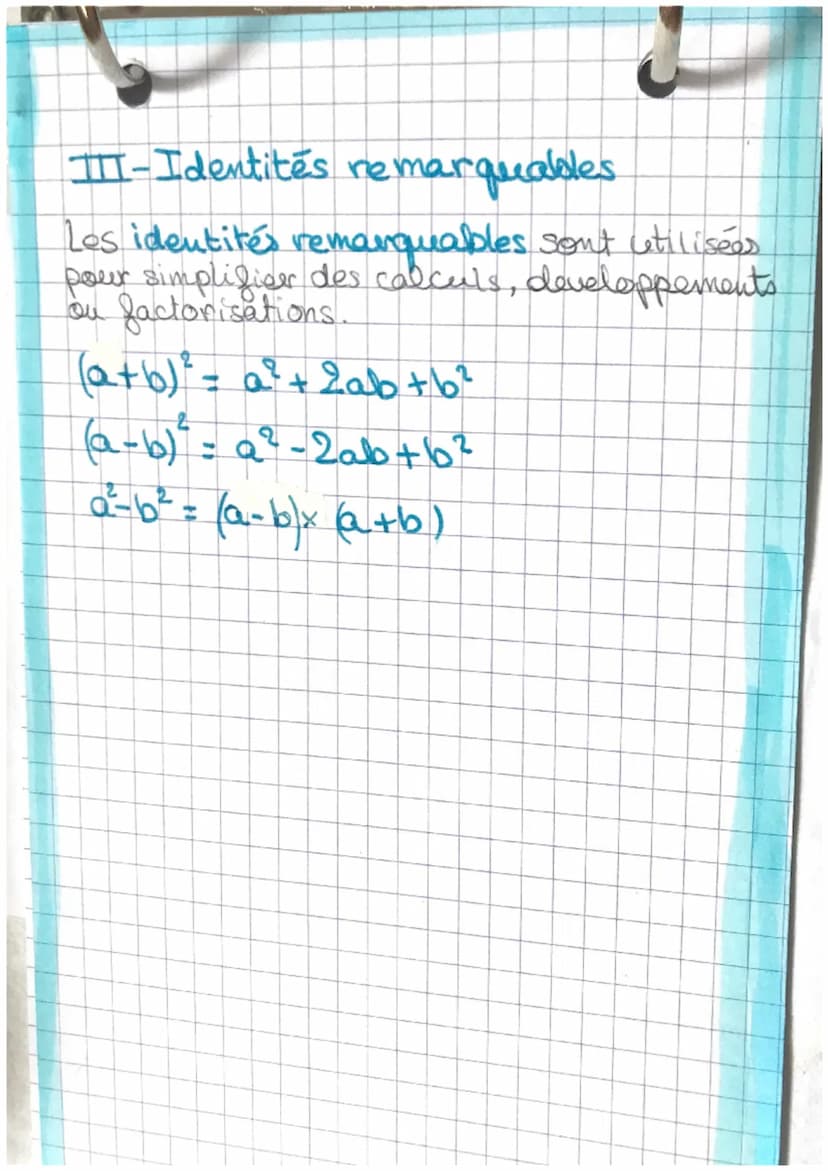 III-Identités remarquables
Les identités remarquables sont utilisées
pour simplifier des calculs, developpements
ou factorisations.
(a+b)² = a² + 2ab + b²
(a-b)² = a² - 2ab + b²
a²-b² = (a-b)x (a+b)